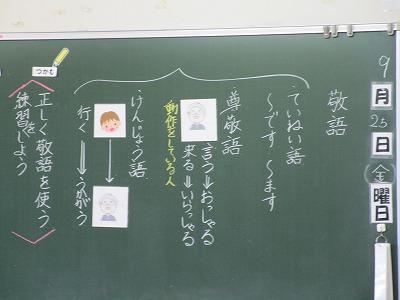 9月25日(金)曜日
敬語
ていねい語
～です ～ます
尊敬語
言う→おっしゃる
来る→いらっしゃる
動作をしている人
けんじょう語
行く→うかがう
つかむ
正しく敬語を使う
練習をしよう